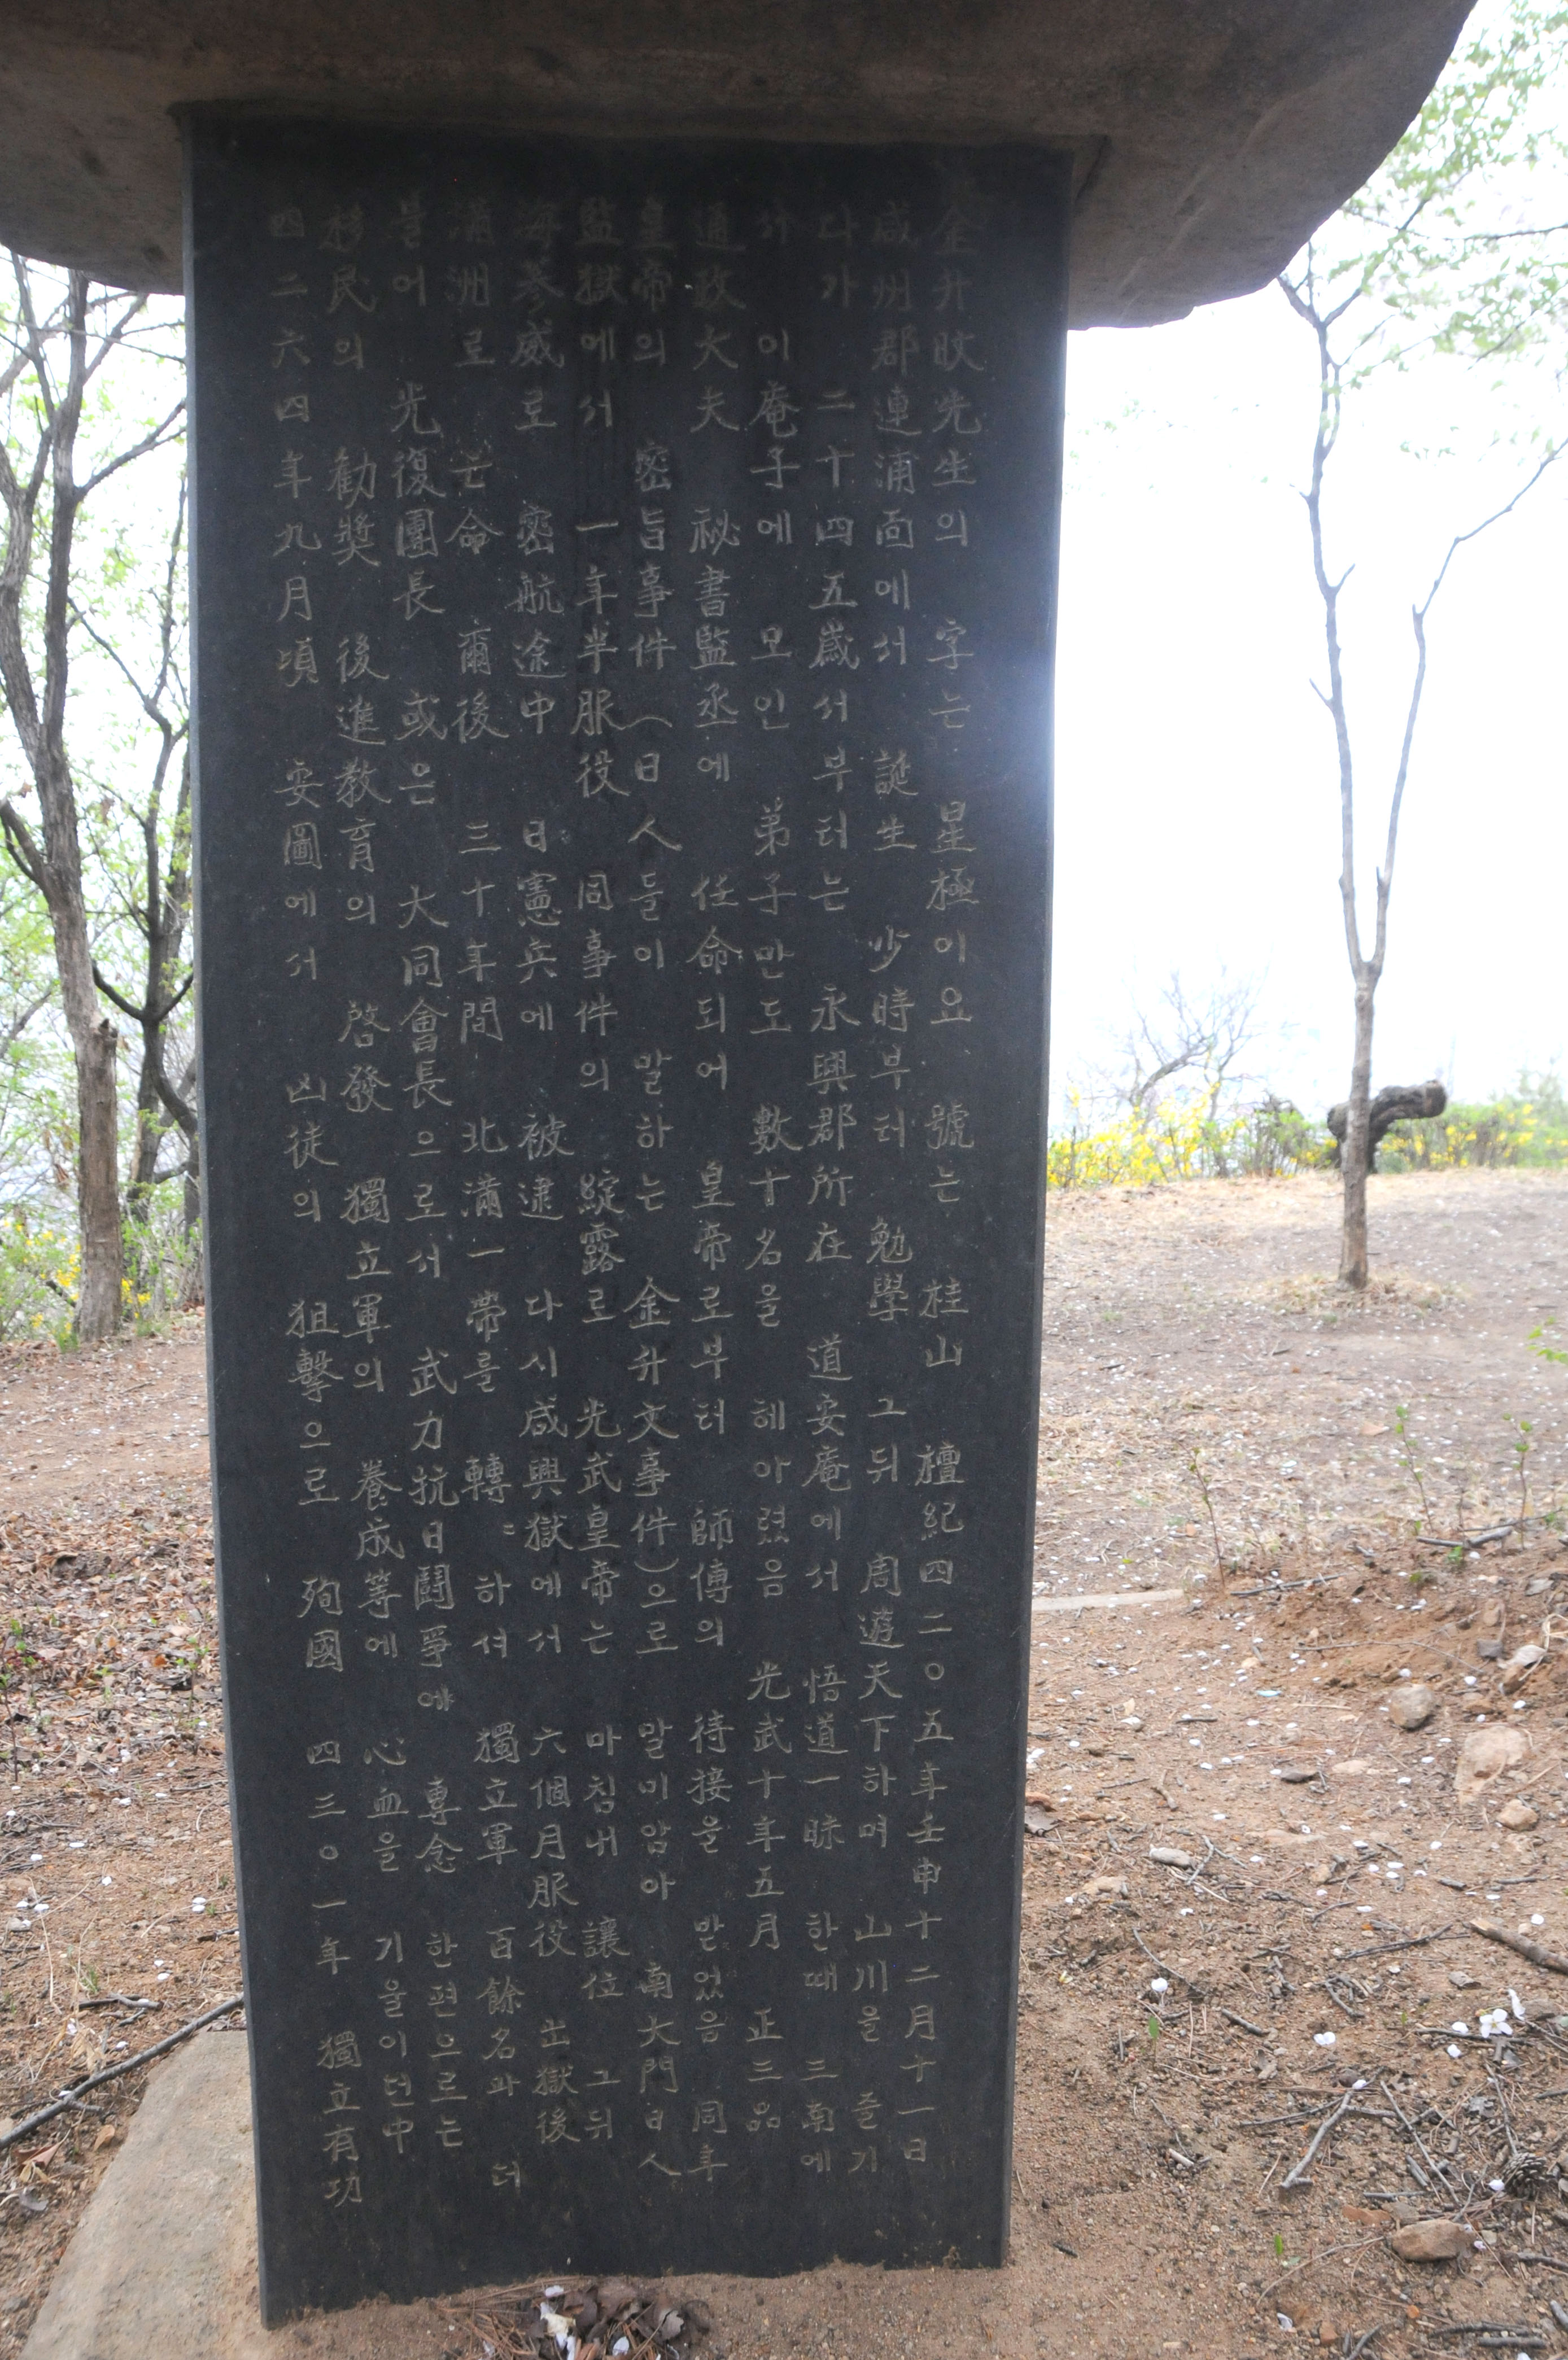 金升旼先生의 字는 星極이요 號는 桂山 檀紀四二〇五年壬申十二月十一日
咸州郡連浦面에서 誕生 少時부터 勉學 그뒤 周遊天下하며 山川을 즐기
다가 二十四五歲서부터는 永興郡所在 道安庵에서 悟道一昧 한때 三南에
서 이庵子에 모인 弟子만도 數十名을 헤아렸음 光武十年五月 正三品
通政大夫 祕書監丞에 任命되어 皇帝로부터 師傅의 待接을 받었음 同年
皇帝의 密旨事件(日人들이 말하는 金升文事件)으로 말미암아 南大門日人
監獄에서 一年半服役 同事件의 綻露로 光武皇帝는 마침내 讓位 그뒤
海蔘威로 密航途中 日憲兵에 被逮 다시咸興獄에서 六個月服役 出獄後
滿洲로 亡命 爾後 三十年間 北滿一帶를 轉〻하셔 獨立軍 百餘名과 더
불어 光復團長 或은 大同會長으로서 武力抗日鬪爭에 專念 한편으로는
移民의 勸奬 後進敎育의 啓發 獨立軍의 養成等에 心血을 기울이던中
四二六四年九月頃 安圖에서 凶徒의 狙擊으로 殉國 四三〇一年 獨立有功